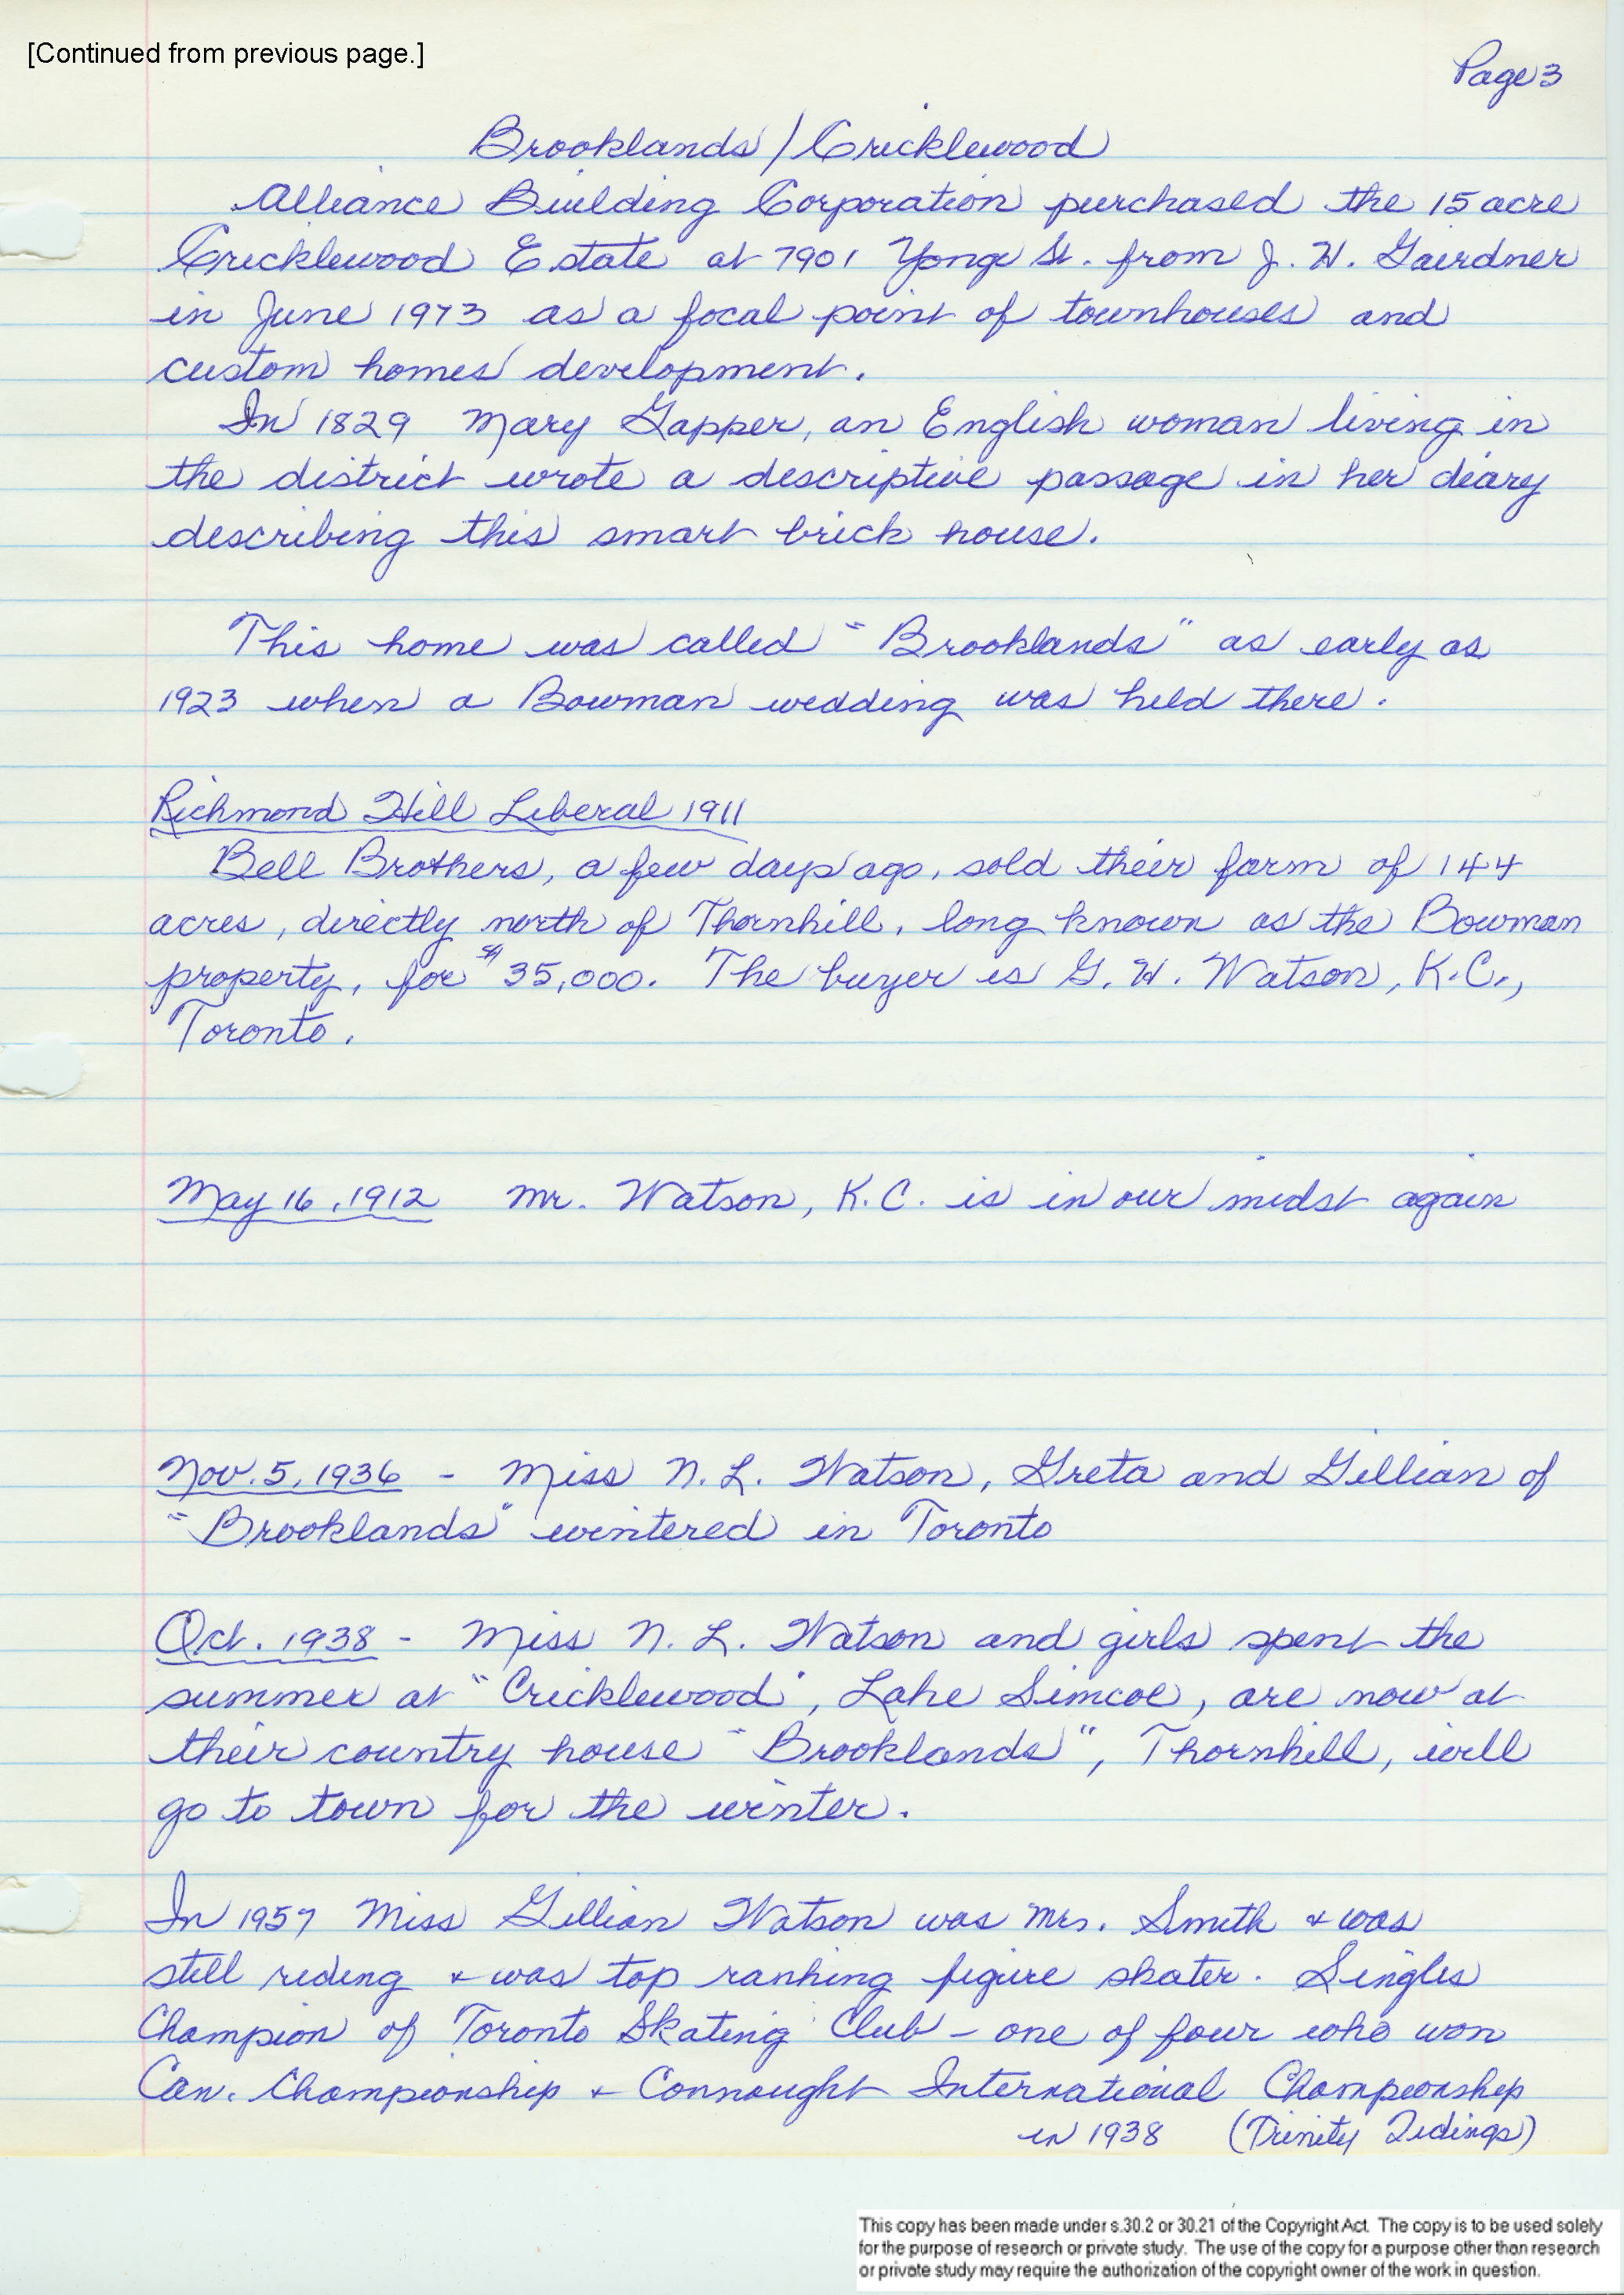 [Continued from previous page.]
Page 3
Brooklands / Cricklewood
Alliance Building Corporation purchased the 15 acre
Cricklewood Estate at 7901 Yonge St. from J. W. Gairdner
in June 1973 as a focal point of townhouses and
custom homes development.
In 1829 Mary Gapper, an English woman living in
the district wrote a descriptive passage in her diary
describing this smart brick house.
This home was called "Brooklands" as early as
1923 when a Bowman wedding was held there.
Richmond Hill Liberal 1911
Bell Brothers, a few days ago, sold their farm of 144
acres, directly north of Thornhill, long known as the Bowman
property, for $35,000. The buyer is G. H. Watson, K.C.,
Toronto.
May 16, 1912 Mr. Watson, K.C. is in our midst again
Nov. 5, 1936 - Miss N. L. Watson, Greta and Gillian of
"Brooklands" wintered in Toronto
Oct. 1938 - Miss N. L. Watson and girls spent the
summer at "Cricklewood", Lake Simcoe, are now at
their country house "Brooklands", Thornhill, will
go to town for the winter.
In 1957 Miss Gillian Watson was Mrs. Smith & was
still riding & was top ranking figure skater. Singles
Champion of Toronto Skating Club - one of four who won
Can. Championship & Connaught International Championship
in 1938 (Trinity Tidings)
This copy has been made under s.30.2 or 30.21 of the Copyright Act. The copy is to be used solely
for the purpose of research or private study. The use of the copy for a purpose other than research
or private study may require the authorization of the copyright owner of the work in question.